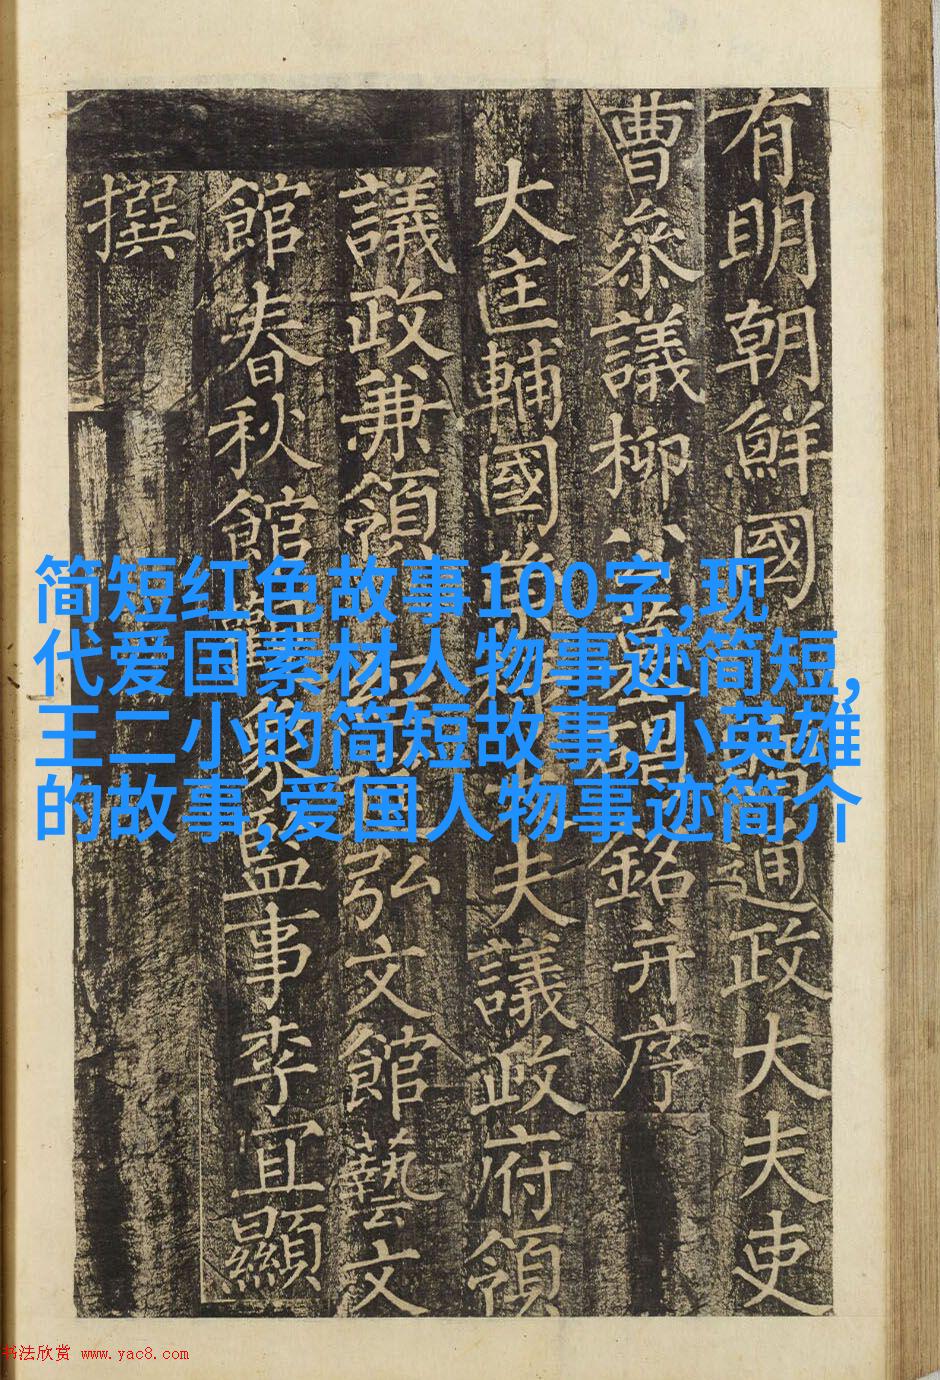 有明朝鮮國通政大夫吏
曹叅議柳公銘并序
大匡輔國夫議政府領
議政兼領弘文館藝文
館春秋館象監事李宜顯
撰
简短红色故事100字,现
代爱国素材人物事迹简短,
王二小的简短故事,小英雄
的故事,爱国人物事迹简介
书法欣赏 www.yac8.com